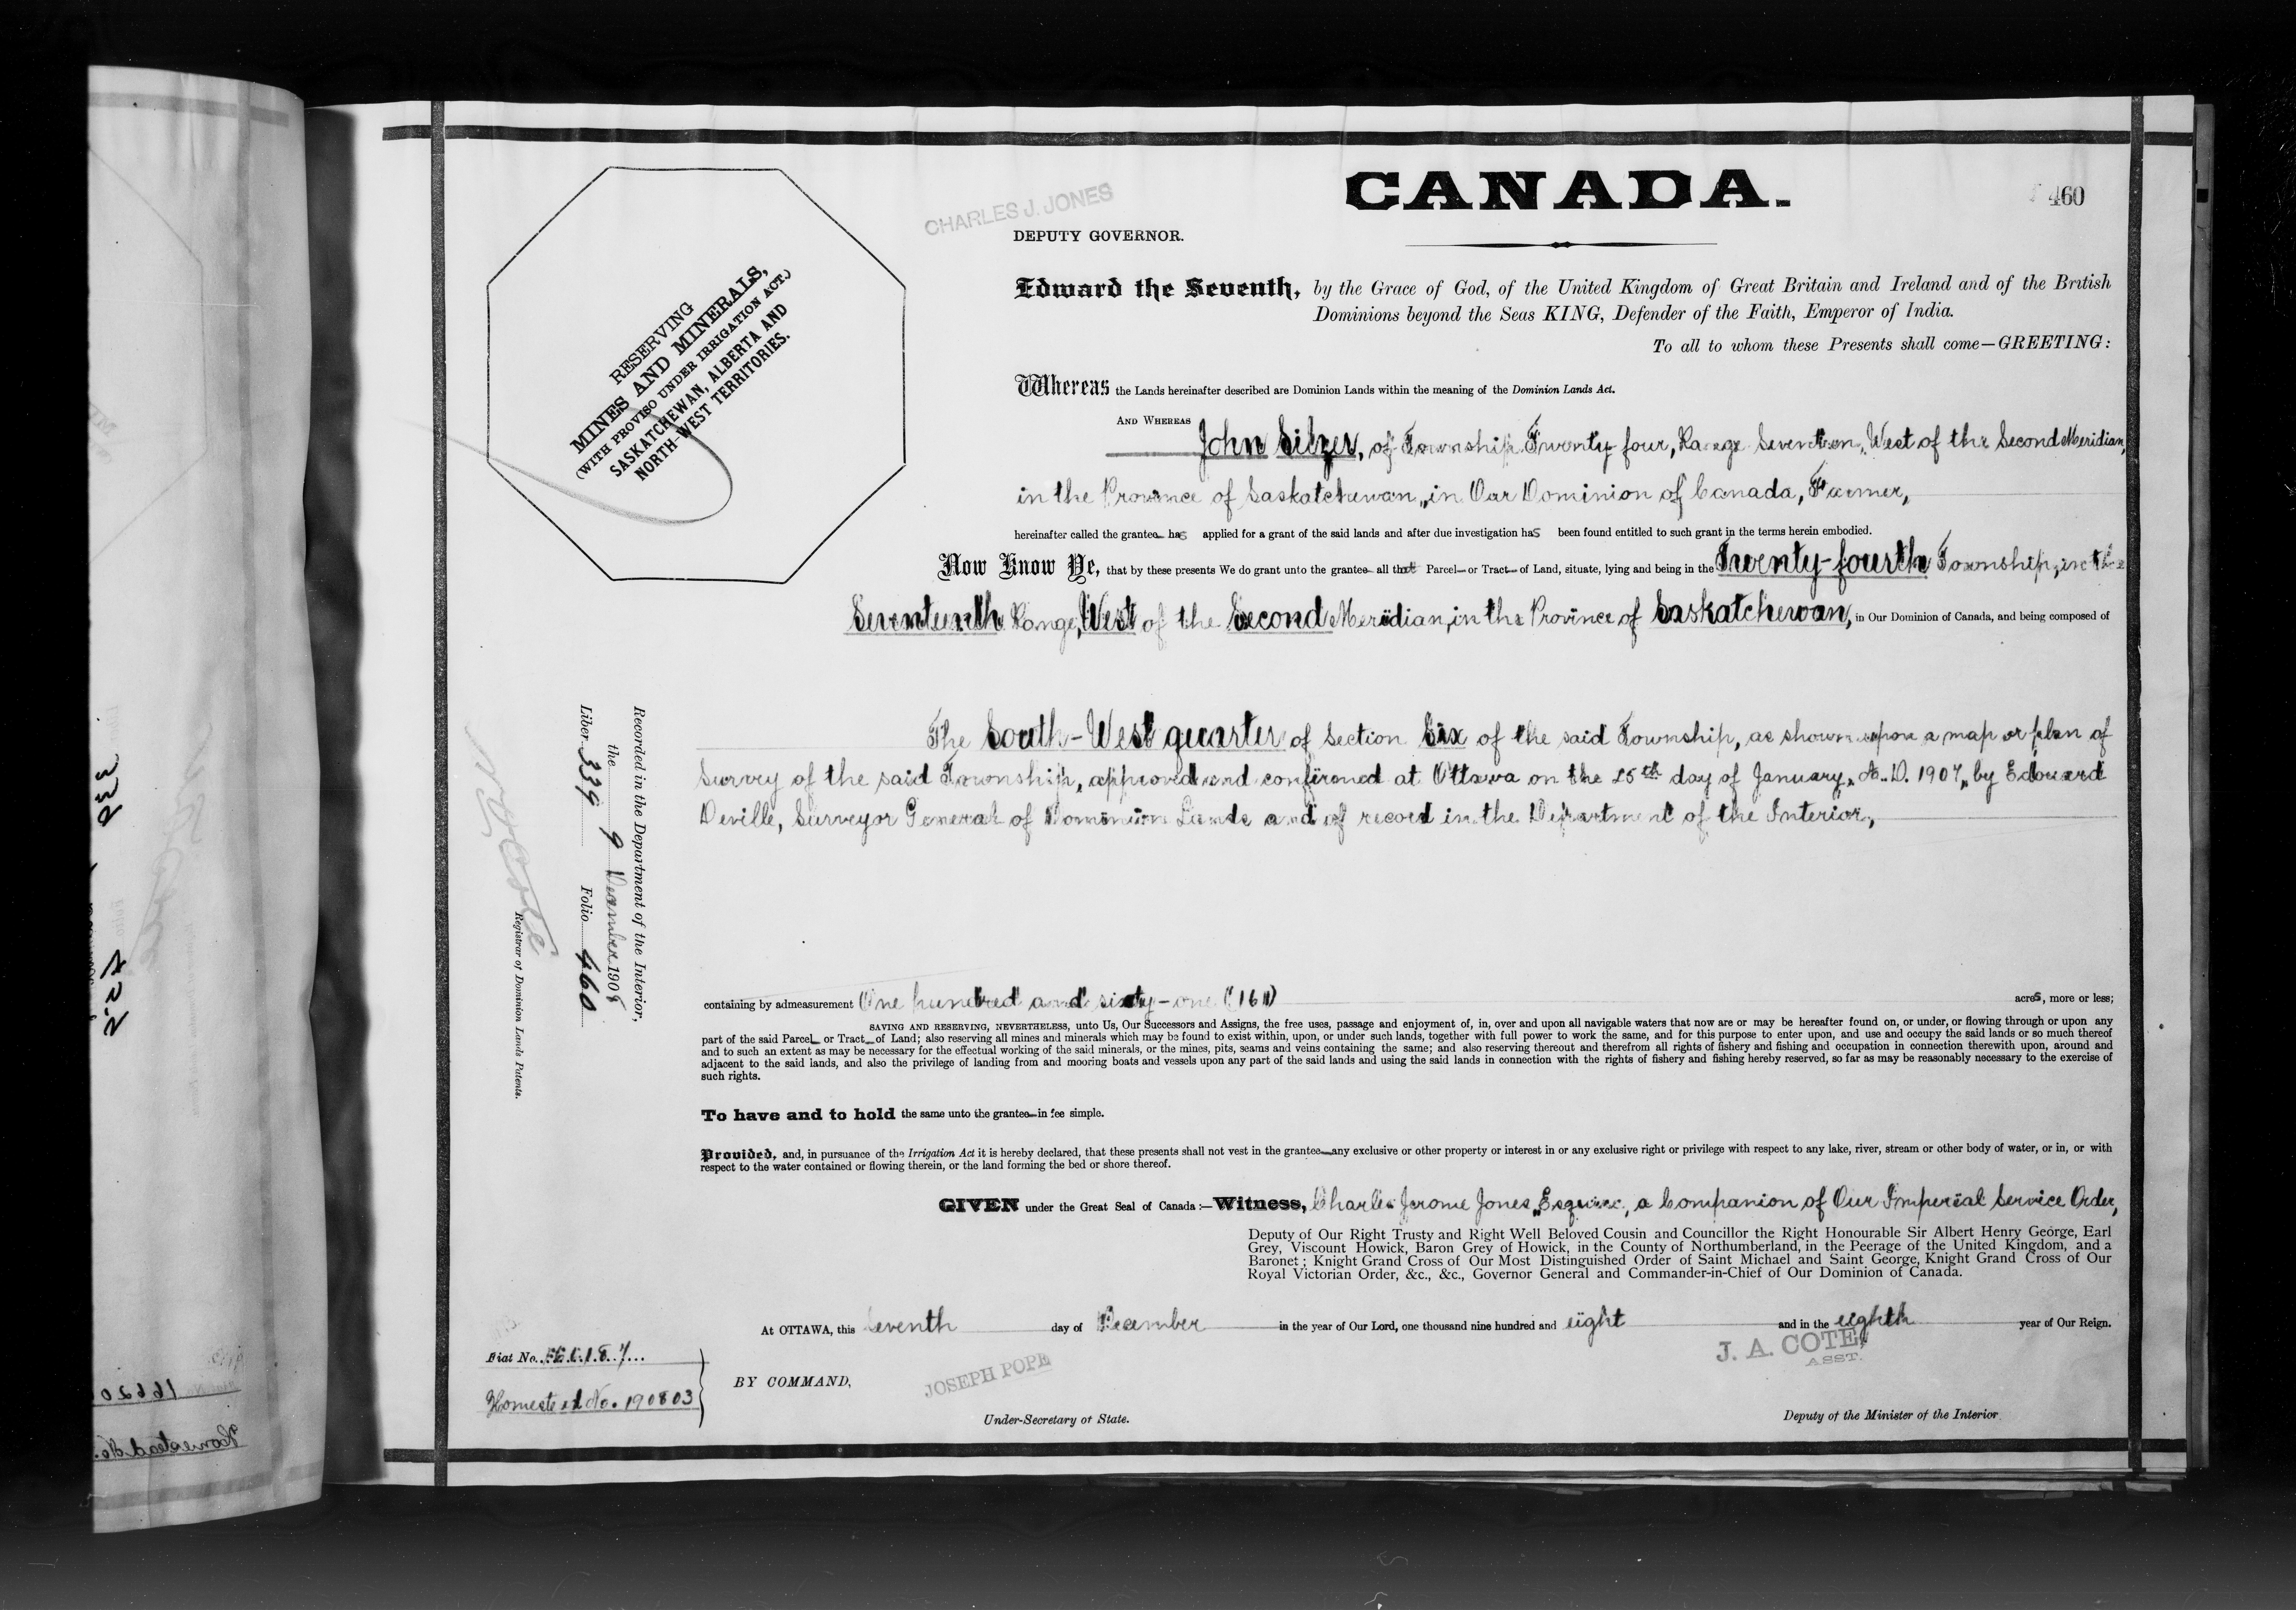 CANADA.
460
CHARLES J. JONES
DEPUTY GOVERNOR.
RESERVING
MINES AND MINERALS,
(WITH PROVISO UNDER IRRIGATION ACT.)
SASKATCHEWAN, ALBERTA AND
NORTH-WEST TERRITORIES.
Edward the Seventh, by the Grace of God, of the United Kingdom of Great Britain and Ireland and of the British
Dominions beyond the Seas KING, Defender of the Faith, Emperor of India.
To all to whom these Presents shall come—GREETING:
Whereas the Lands hereinafter described are Dominion Lands within the meaning of the Dominion Lands Act.
AND WHEREAS John Silzer, of Township Twenty four, Range Seventeen, West of the Second Meridian,
in the Province of Saskatchewan, in Our Dominion of Canada, Farmer,
hereinafter called the grantee has applied for a grant of the said lands and after due investigation has been found entitled to such grant in the terms herein embodied.
Now Know Ye, that by these presents We do grant unto the grantee all that Parcel or Tract of Land, situate, lying and being in the Twenty-fourth Township, in the
Seventeenth Range, West of the Second Meridian, in the Province of Saskatchewan, in Our Dominion of Canada, and being composed of
The South-West quarter of Section Six of the said Township, as shown upon a map or plan of
Survey of the said Township, approved and confirmed at Ottawa on the 25th day of January, A.D. 1907, by Edouard
Deville, Surveyor General of Dominion Lands and of record in the Department of the Interior,
Recorded in the Department of the Interior,
the 9 December 1908
Liber 339 Folio 460
Registrar of Dominion Lands Patents.
containing by admeasurement One hundred and sixty-one (161) acres, more or less;
SAVING AND RESERVING, NEVERTHELESS, unto Us, Our Successors and Assigns, the free uses, passage and enjoyment of, in, over and upon all navigable waters that now are or may be hereafter found on, or under, or flowing through or upon any
part of the said Parcel or Tract of Land; also reserving all mines and minerals which may be found to exist within, upon, or under such lands, together with full power to work the same, and for this purpose to enter upon, and use and occupy the said lands or so much thereof
and to such an extent as may be necessary for the effectual working of the said minerals, or the mines, pits, seams and veins containing the same; and also reserving thereout and therefrom all rights of fishery and fishing and occupation in connection therewith upon, around and
adjacent to the said lands, and also the privilege of landing from and mooring boats and vessels upon any part of the said lands and using the said lands in connection with the rights of fishery and fishing hereby reserved, so far as may be reasonably necessary to the exercise of
such rights.
To have and to hold the same unto the grantee in fee simple.
Provided, and, in pursuance of the Irrigation Act it is hereby declared, that these presents shall not vest in the grantee any exclusive or other property or interest in or any exclusive right or privilege with respect to any lake, river, stream or other body of water, or in, or with
respect to the water contained or flowing therein, or the land forming the bed or shore thereof.
GIVEN under the Great Seal of Canada:—Witness, Charles Jerome Jones, Esquire, a Companion of Our Imperial Service Order,
Deputy of Our Right Trusty and Right Well Beloved Cousin and Councillor the Right Honourable Sir Albert Henry George, Earl
Grey, Viscount Howick, Baron Grey of Howick, in the County of Northumberland, in the Peerage of the United Kingdom, and a
Baronet; Knight Grand Cross of Our Most Distinguished Order of Saint Michael and Saint George, Knight Grand Cross of Our
Royal Victorian Order, &c., &c., Governor General and Commander-in-Chief of Our Dominion of Canada.
At OTTAWA, this seventh day of December in the year of Our Lord, one thousand nine hundred and eight and in the eighth year of Our Reign.
J. A. COTE,
ASST.
Fiat No.
Homestead No. 190803
BY COMMAND,
JOSEPH POPE
Under-Secretary of State.
Deputy of the Minister of the Interior